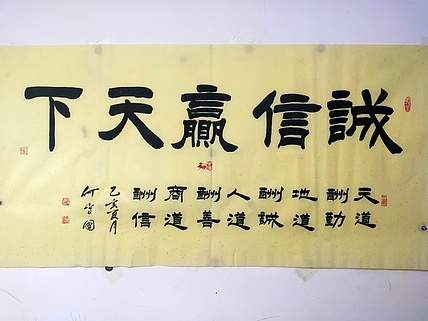 誠信贏天下
天道
酬勤
地道
酬誠
人道
酬善
商道
酬信
乙亥夏月